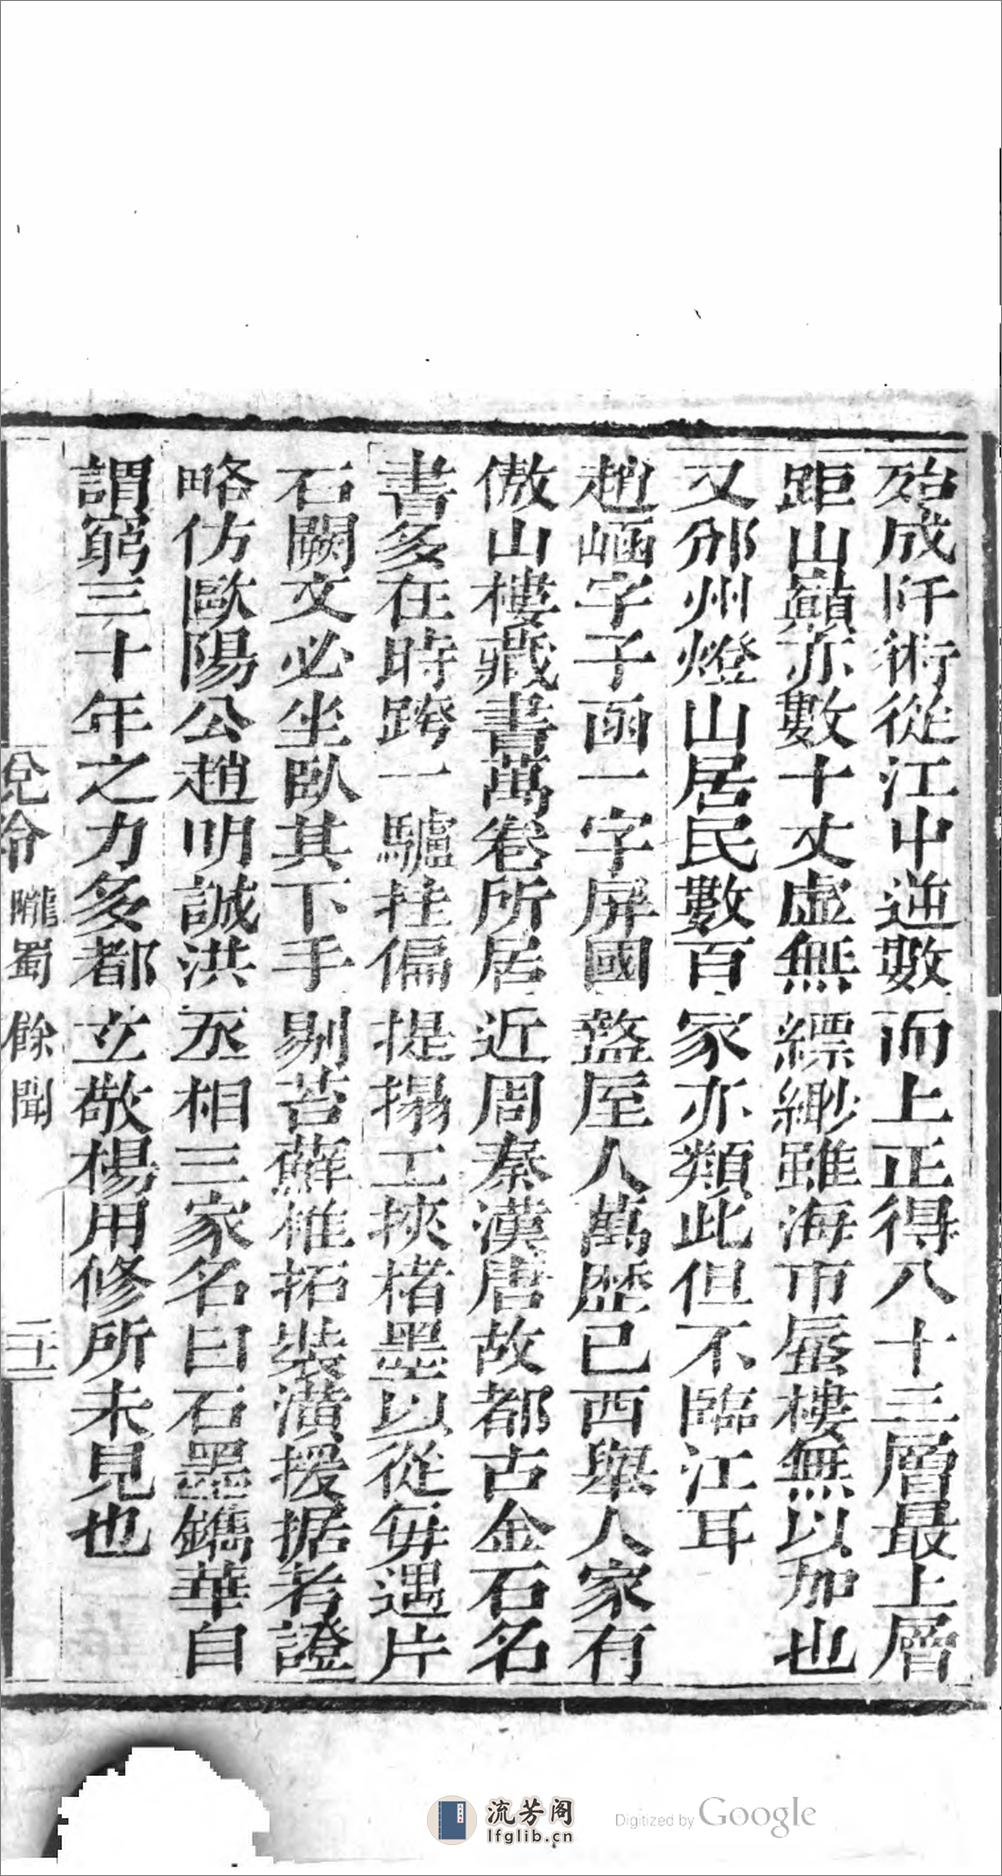 殆成阡術從江中逆數而上正得八十三層最上層
距山巔亦數十丈虛無縹緲雖海市蜃樓無以加也
又邠州燈山居民數百家亦類此但不臨江耳
趙崡字子函一字屏國盩厔人萬歴已酉舉人家有
傲山樓藏書萬卷所居近周秦漢唐故都古金石名
書多在時跨一驢挂偏提搨工挾楮墨以從每遇片
石闕文必坐臥其下手剔苔蘚椎拓裝潢援据考證
略仿歐陽公趙明誠洪丞相三家名曰石墨鐫華自
謂窮三十年之力多都立敬楊用修所未見也
兌令
隴蜀餘聞
二十一
流芳阁
lfglib.cn
Digitized by Google